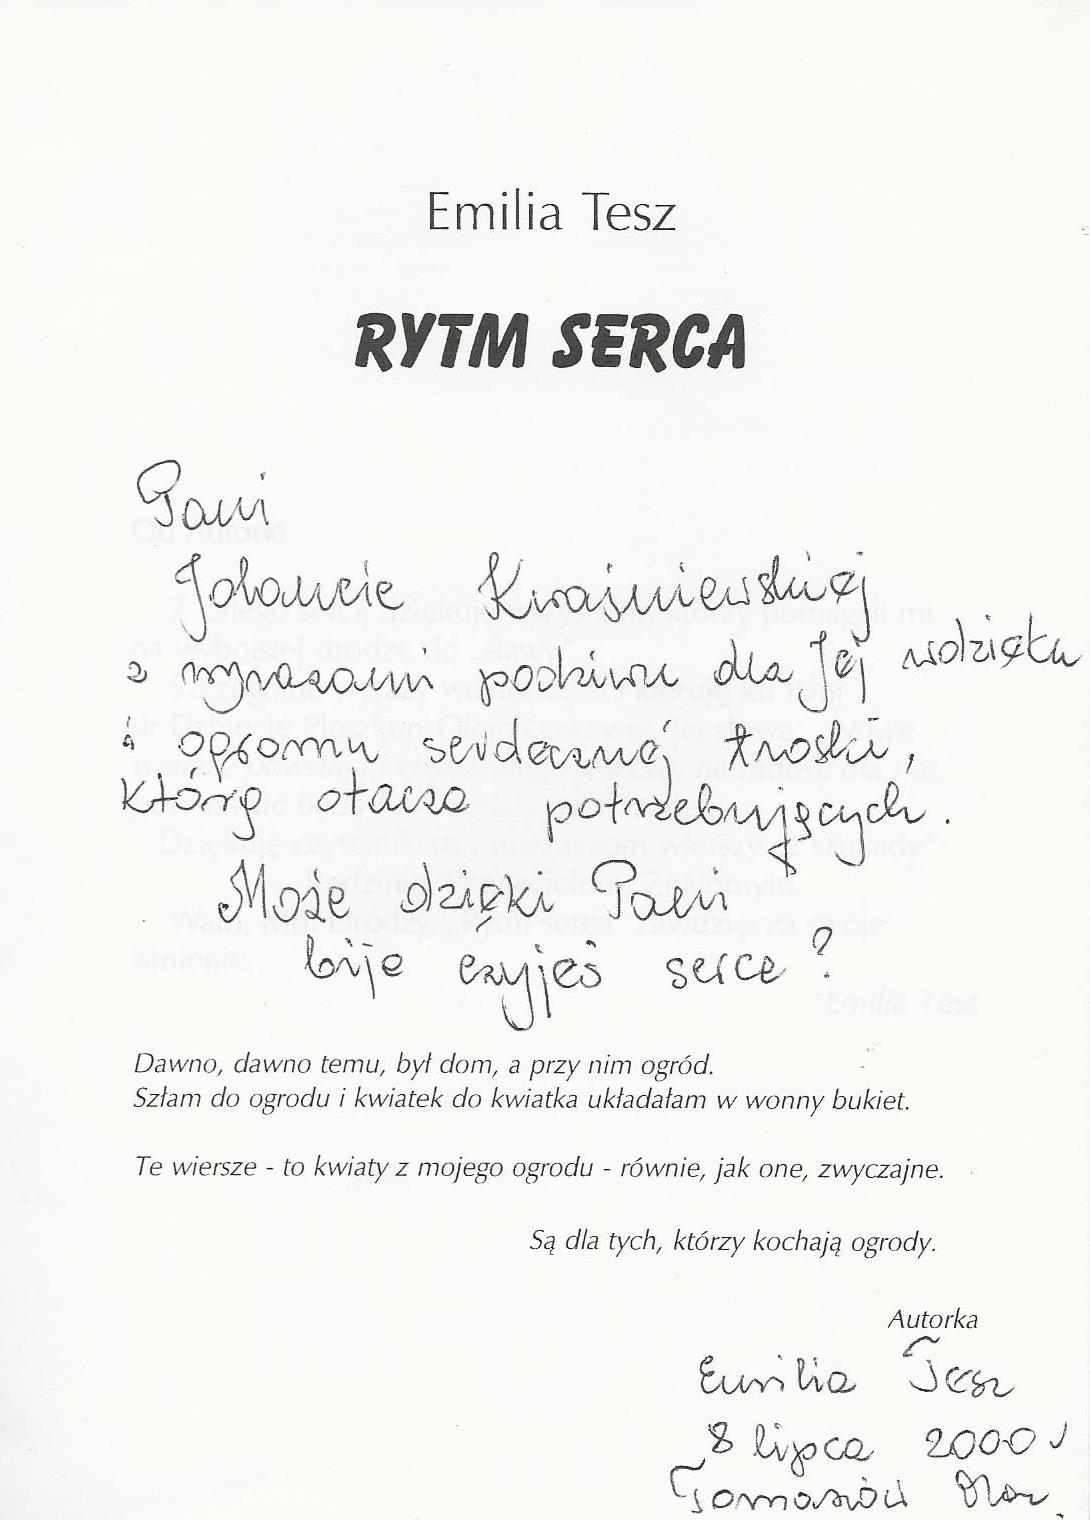 Emilia Tesz
RYTM SERCA
Pani
Jolancie Kwaśniewskiej
z wyrazami podziwu dla Jej wdzięku
i ogromu serdecznej troski,
którą otacza potrzebujących.
Może dzięki Pani
bije czyjeś serce?
Dawno, dawno temu, był dom, a przy nim ogród.
Szłam do ogrodu i kwiatek do kwiatka układałam w wonny bukiet.
Te wiersze - to kwiaty z mojego ogrodu - równie, jak one, zwyczajne.
Są dla tych, którzy kochają ogrody.
Autorka
Emilia Tesz
8 lipca 2000 r
Tomaszów Maz.